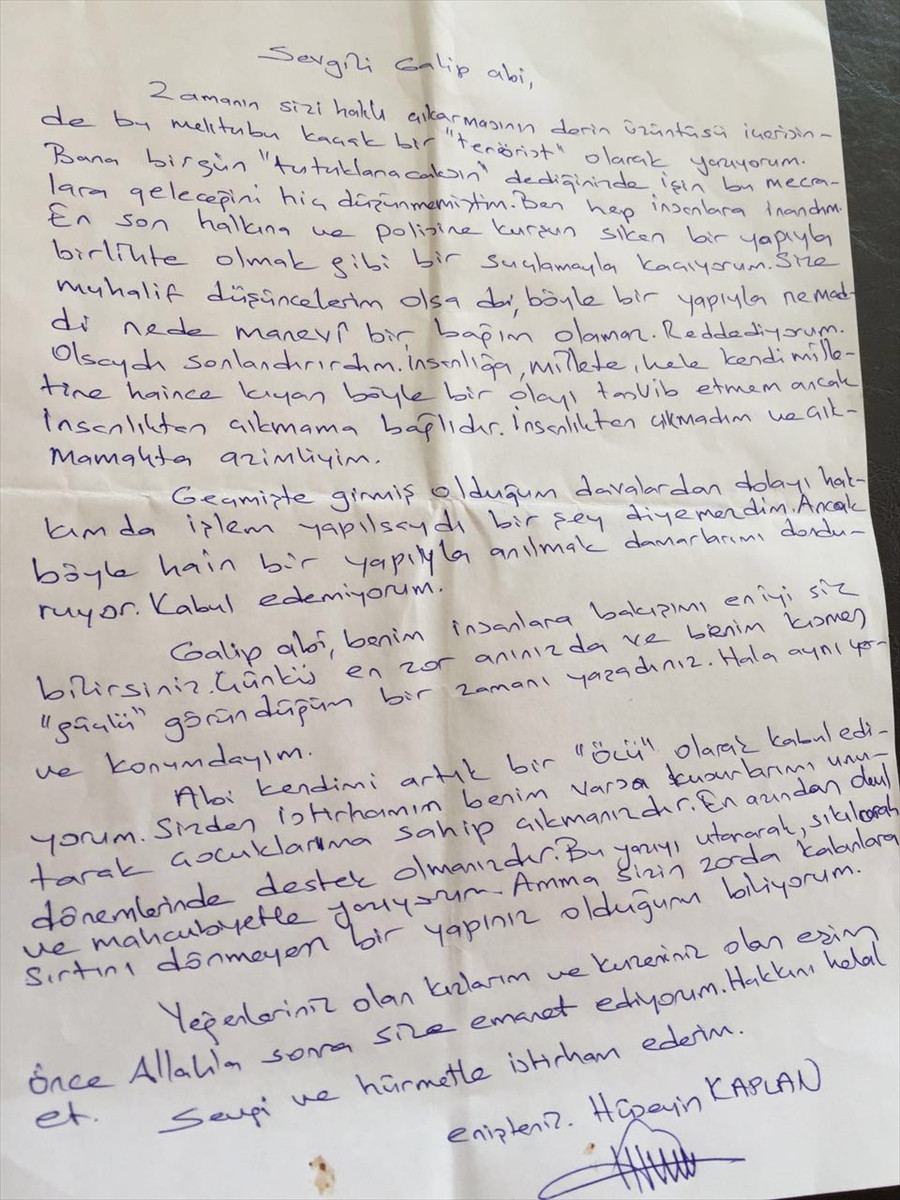 Sevgili Galip abi,
Zamanın sizi haklı çıkarmasının derin üzüntüsü içerisin-
de bu mektubu kaçak bir "terörist" olarak yazıyorum.
Bana birgün "tutuklanacaksın" dediğinizde işin bu mecra-
lara geleceğini hiç düşünmemiştim. Ben hep insanlara inandım.
En son halkına ve polisine kurşun sıken bir yapıyla
birlikte olmak gibi bir suçlamayla kaçıyorum. Size
muhalif düşüncelerim olsa da, böyle bir yapıyla ne mad-
di nede manevî bir bağım olamaz. Reddediyorum.
Olsaydı sonlandırırdım. İnsanlığa, millete, hele kendi mille-
tine haince kıyan böyle bir olayı tasvib etmem ancak
insanlıkten çıkmama bağlıdır. İnsanlıkten çıkmadım ve çık-
mamakta azimliyim.
Geçmişte girmiş olduğum davalardan dolayı hak-
kımda işlem yapılsaydı bir şey diyemezdim. Ancak
böyle hain bir yapıyla anılmak damarlarımı dondu-
ruyor. Kabul edemiyorum.
Galip abi, benim insanlara bakışımı en iyi siz
bilirsiniz. Çünkü en zor anınızda ve benim kısmen
"güçlü" göründüğüm bir zamanı yaşadınız. Hala aynı yer-
ve konumdayım.
Abi kendimi artık bir "öcü" olarak kabul edi-
yorum. Sizden istirhamım benim varsa kusurlarımı unu-
tarak çocuklarıma sahip çıkmanızdır. En azından okul
dönemlerinde destek olmanızdır. Bu yazıyı utanarak, sıkılarak
ve mahcubiyetle yazıyorum. Amma sizin zorda kalanlara
sırtını dönmeyen bir yapınız olduğunu biliyorum.
Yeğenleriniz olan kızlarım ve kuzeniniz olan eşim
önce Allah'a sonra size emanet ediyorum. Hakkını helal
et. Sevgi ve hürmetle istirham ederim.
enişteniz. Hüseyin KAPLAN